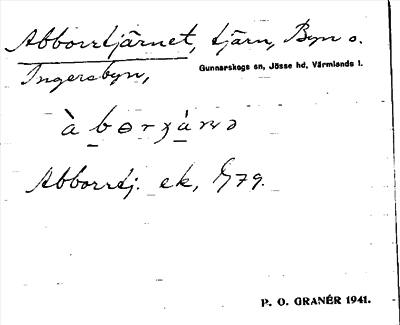 Abborrtjärnet, tjärn, Byn o.
Ingersbyn,
Gunnarskogs sn, Jösse hd, Värmlands l.
Abborrtj. ek, G79.
P. O. GRANÉR 1941.